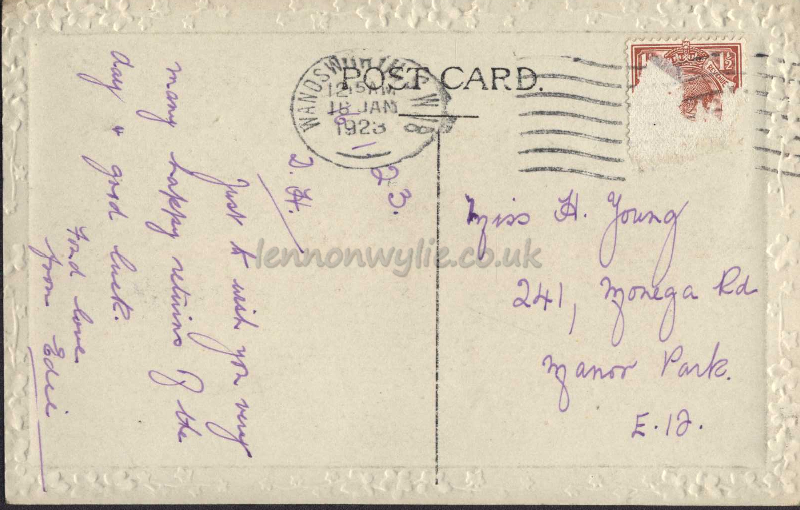 POST CARD.
WANDSWORTH S.W.18
12.15 AM
18 JAN
1923
1½
1 23.
D. H.
Just to wish you very
many happy returns of the
day & good luck.
Fond love
from Edie
Miss H. Young
241, Monega Rd
Manor Park.
E.12.
lennonwylie.co.uk